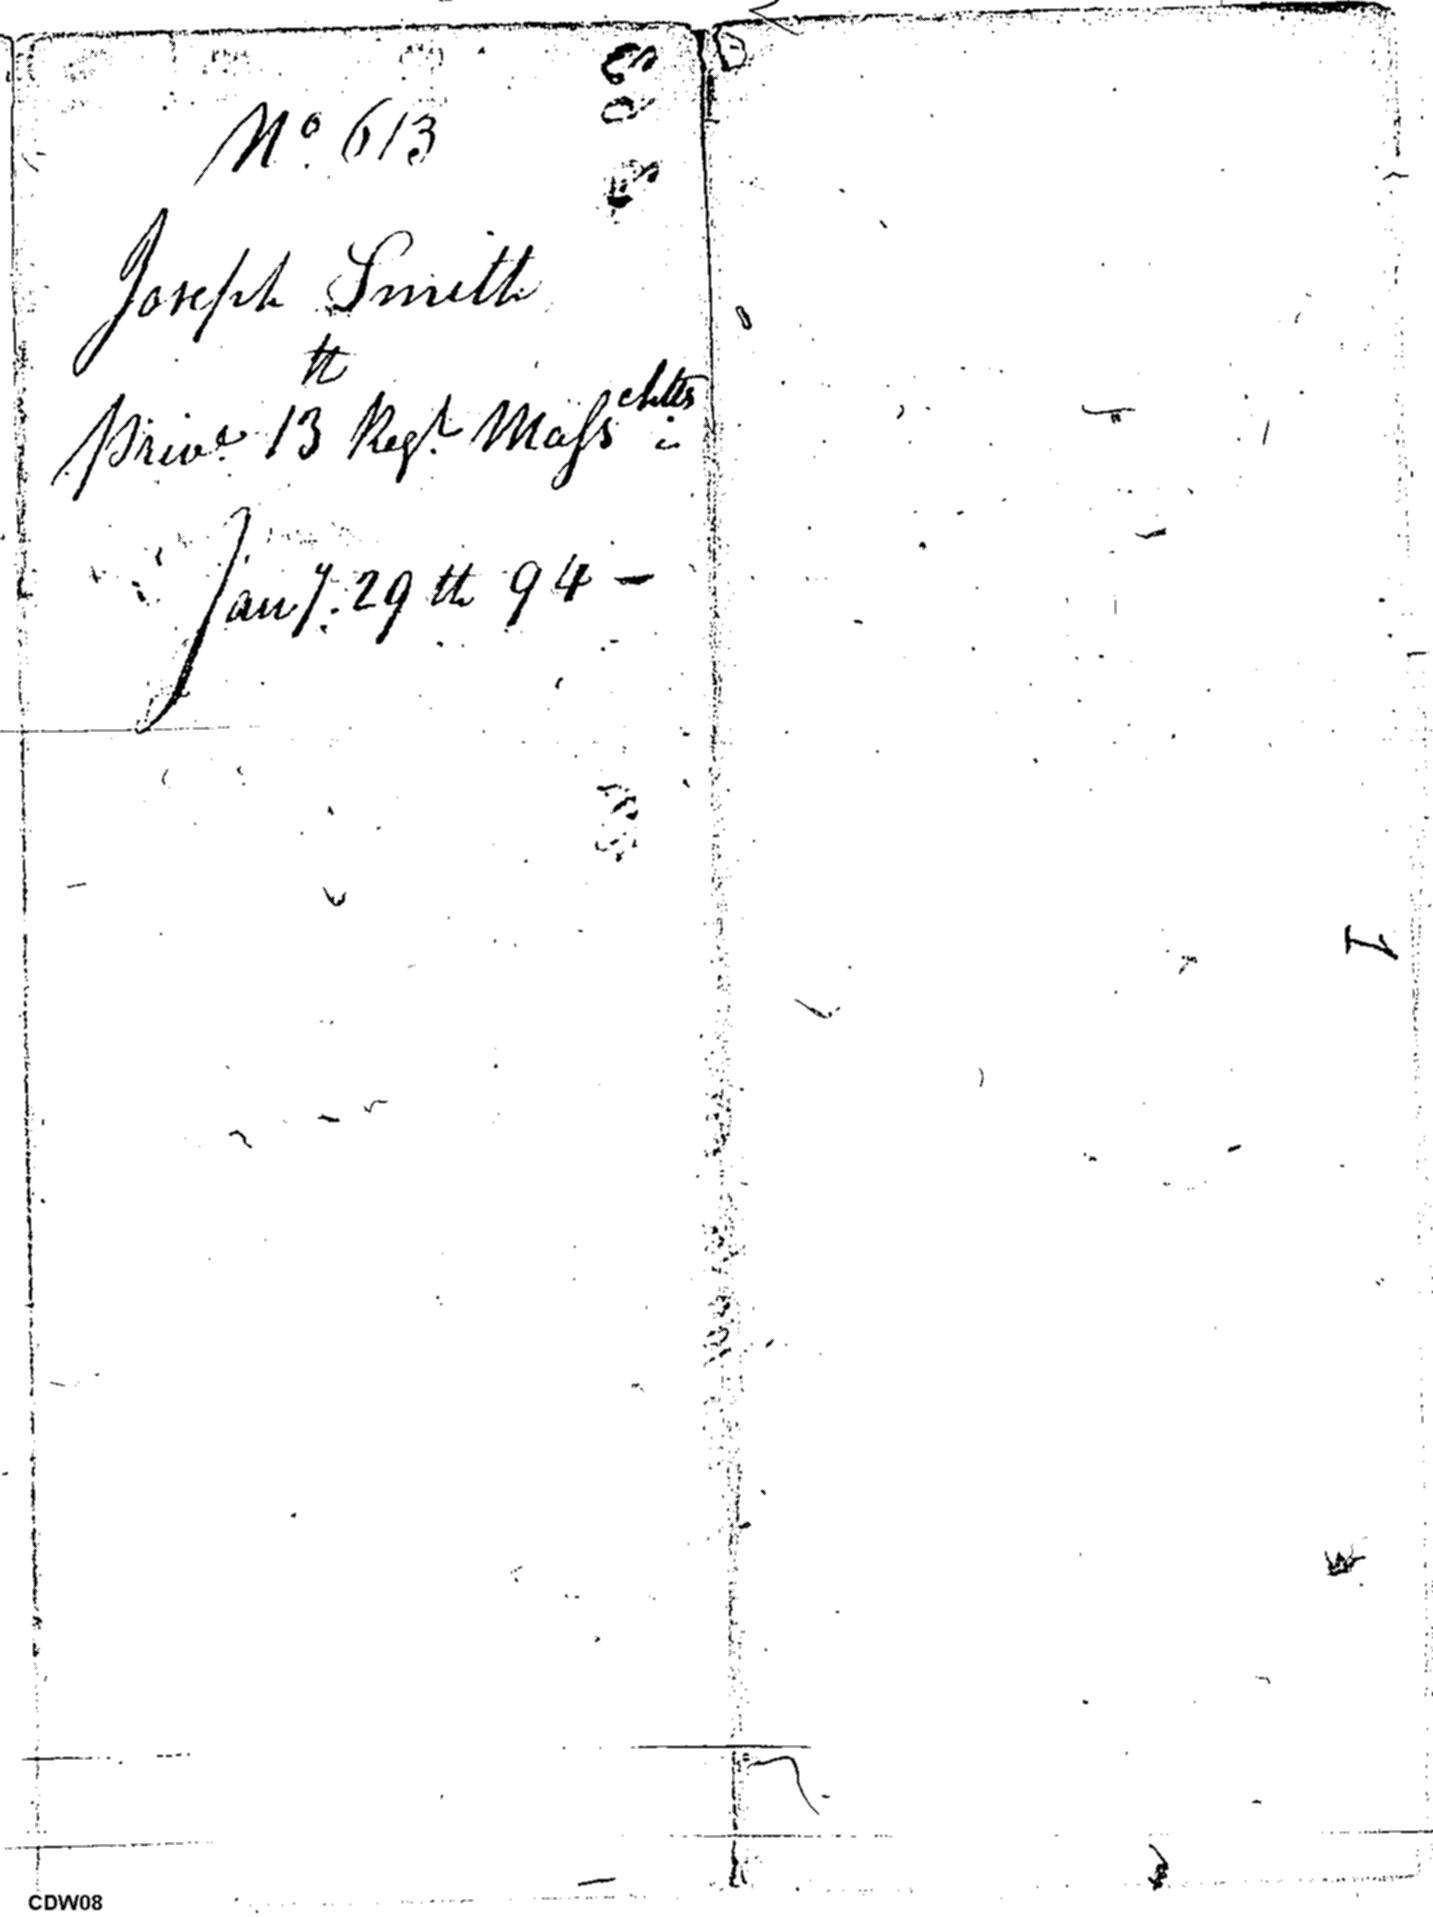 No. 613
Joseph Smith
Priva. 13th Regt. Masschtts
Jany. 29th 94 —
CDW08